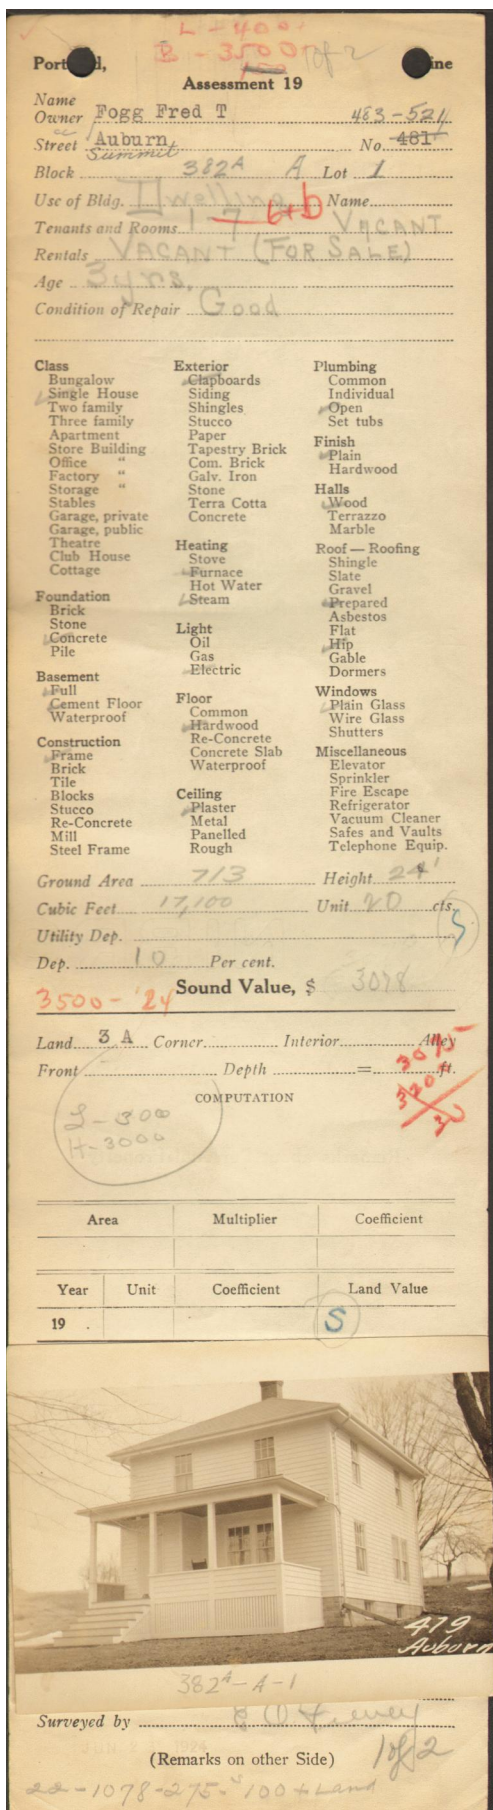 L - 400
B - 3500 1 of 2
Portland, Maine
Assessment 19
Name
Owner Fogg Fred T 483-521
Street Auburn No. 481
Summit
Block 382A A Lot 1
Use of Bldg. Dwelling Name
Tenants and Rooms 1 - 7 6+b VACANT
Rentals VACANT (FOR SALE)
Age 3 yrs.
Condition of Repair Good
Class
Bungalow
Single House
Two family
Three family
Apartment
Store Building
Office "
Factory "
Storage "
Stables
Garage, private
Garage, public
Theatre
Club House
Cottage
Foundation
Brick
Stone
Concrete
Pile
Basement
Full
Cement Floor
Waterproof
Construction
Frame
Brick
Tile
Blocks
Stucco
Re-Concrete
Mill
Steel Frame
Exterior
Clapboards
Siding
Shingles
Stucco
Paper
Tapestry Brick
Com. Brick
Galv. Iron
Stone
Terra Cotta
Concrete
Heating
Stove
Furnace
Hot Water
Steam
Light
Oil
Gas
Electric
Floor
Common
Hardwood
Re-Concrete
Concrete Slab
Waterproof
Ceiling
Plaster
Metal
Panelled
Rough
Plumbing
Common
Individual
Open
Set tubs
Finish
Plain
Hardwood
Halls
Wood
Terrazzo
Marble
Roof — Roofing
Shingle
Slate
Gravel
Prepared
Asbestos
Flat
Hip
Gable
Dormers
Windows
Plain Glass
Wire Glass
Shutters
Miscellaneous
Elevator
Sprinkler
Fire Escape
Refrigerator
Vacuum Cleaner
Safes and Vaults
Telephone Equip.
Ground Area 713 Height 24'
Cubic Feet 17,100 Unit 20 cts.
Utility Dep.
Dep. 10 Per cent.
Sound Value, $ 3078
3500 - '24
Land 3 A Corner Interior Alley
Front Depth = ft.
3075
320
30
COMPUTATION
L - 300
H - 3000
Area Multiplier Coefficient
Year Unit Coefficient Land Value
19 . S
479
Auburn
382A-A-1
Surveyed by
(Remarks on other Side) 1 of 2
22-1078-275- 100 + Land